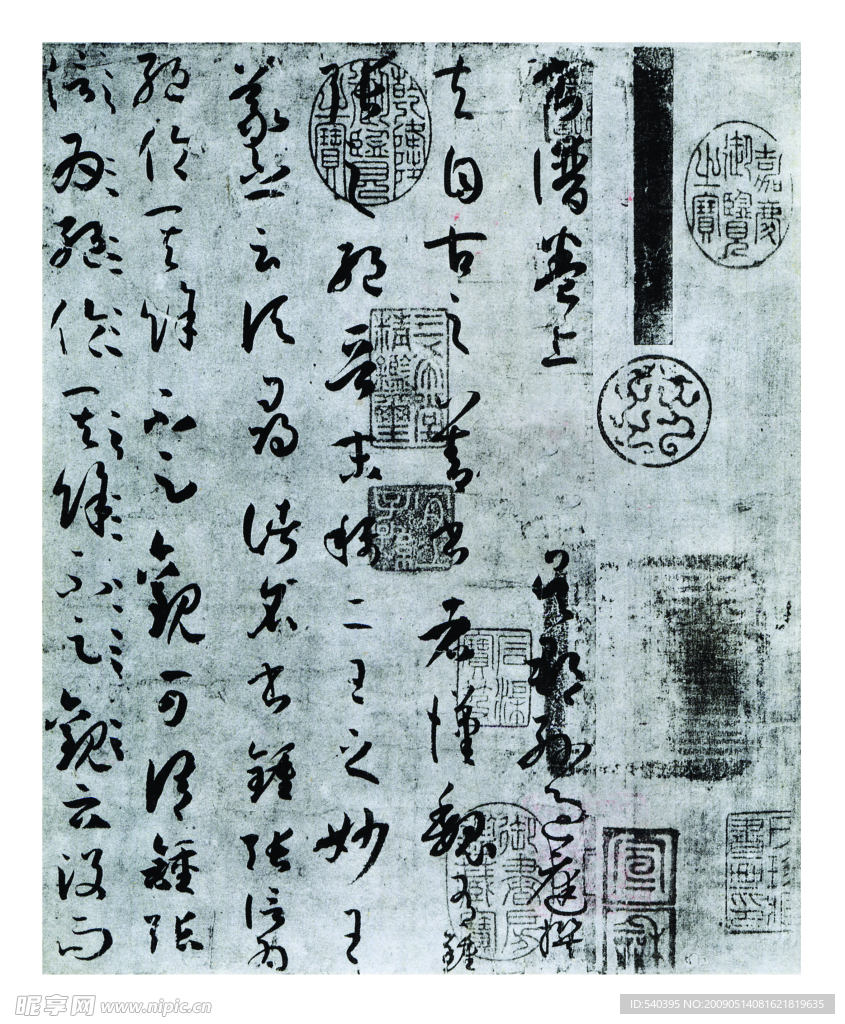 書譜卷上 吳郡孫過庭撰
夫自古之善書者漢魏有鍾
張之絕晉末稱二王之妙王
羲之云頃尋諸名書鍾張信為
絕倫其餘不足觀可謂鍾張
信為絕倫其餘不足觀云沒而
嘉慶御覽之寶
乾隆御覽之寶
三希堂精鑑璽
宜子孫
石渠寶笈
昵享网 www.nipic.cn
ID:540395 NO:20090514081621819635